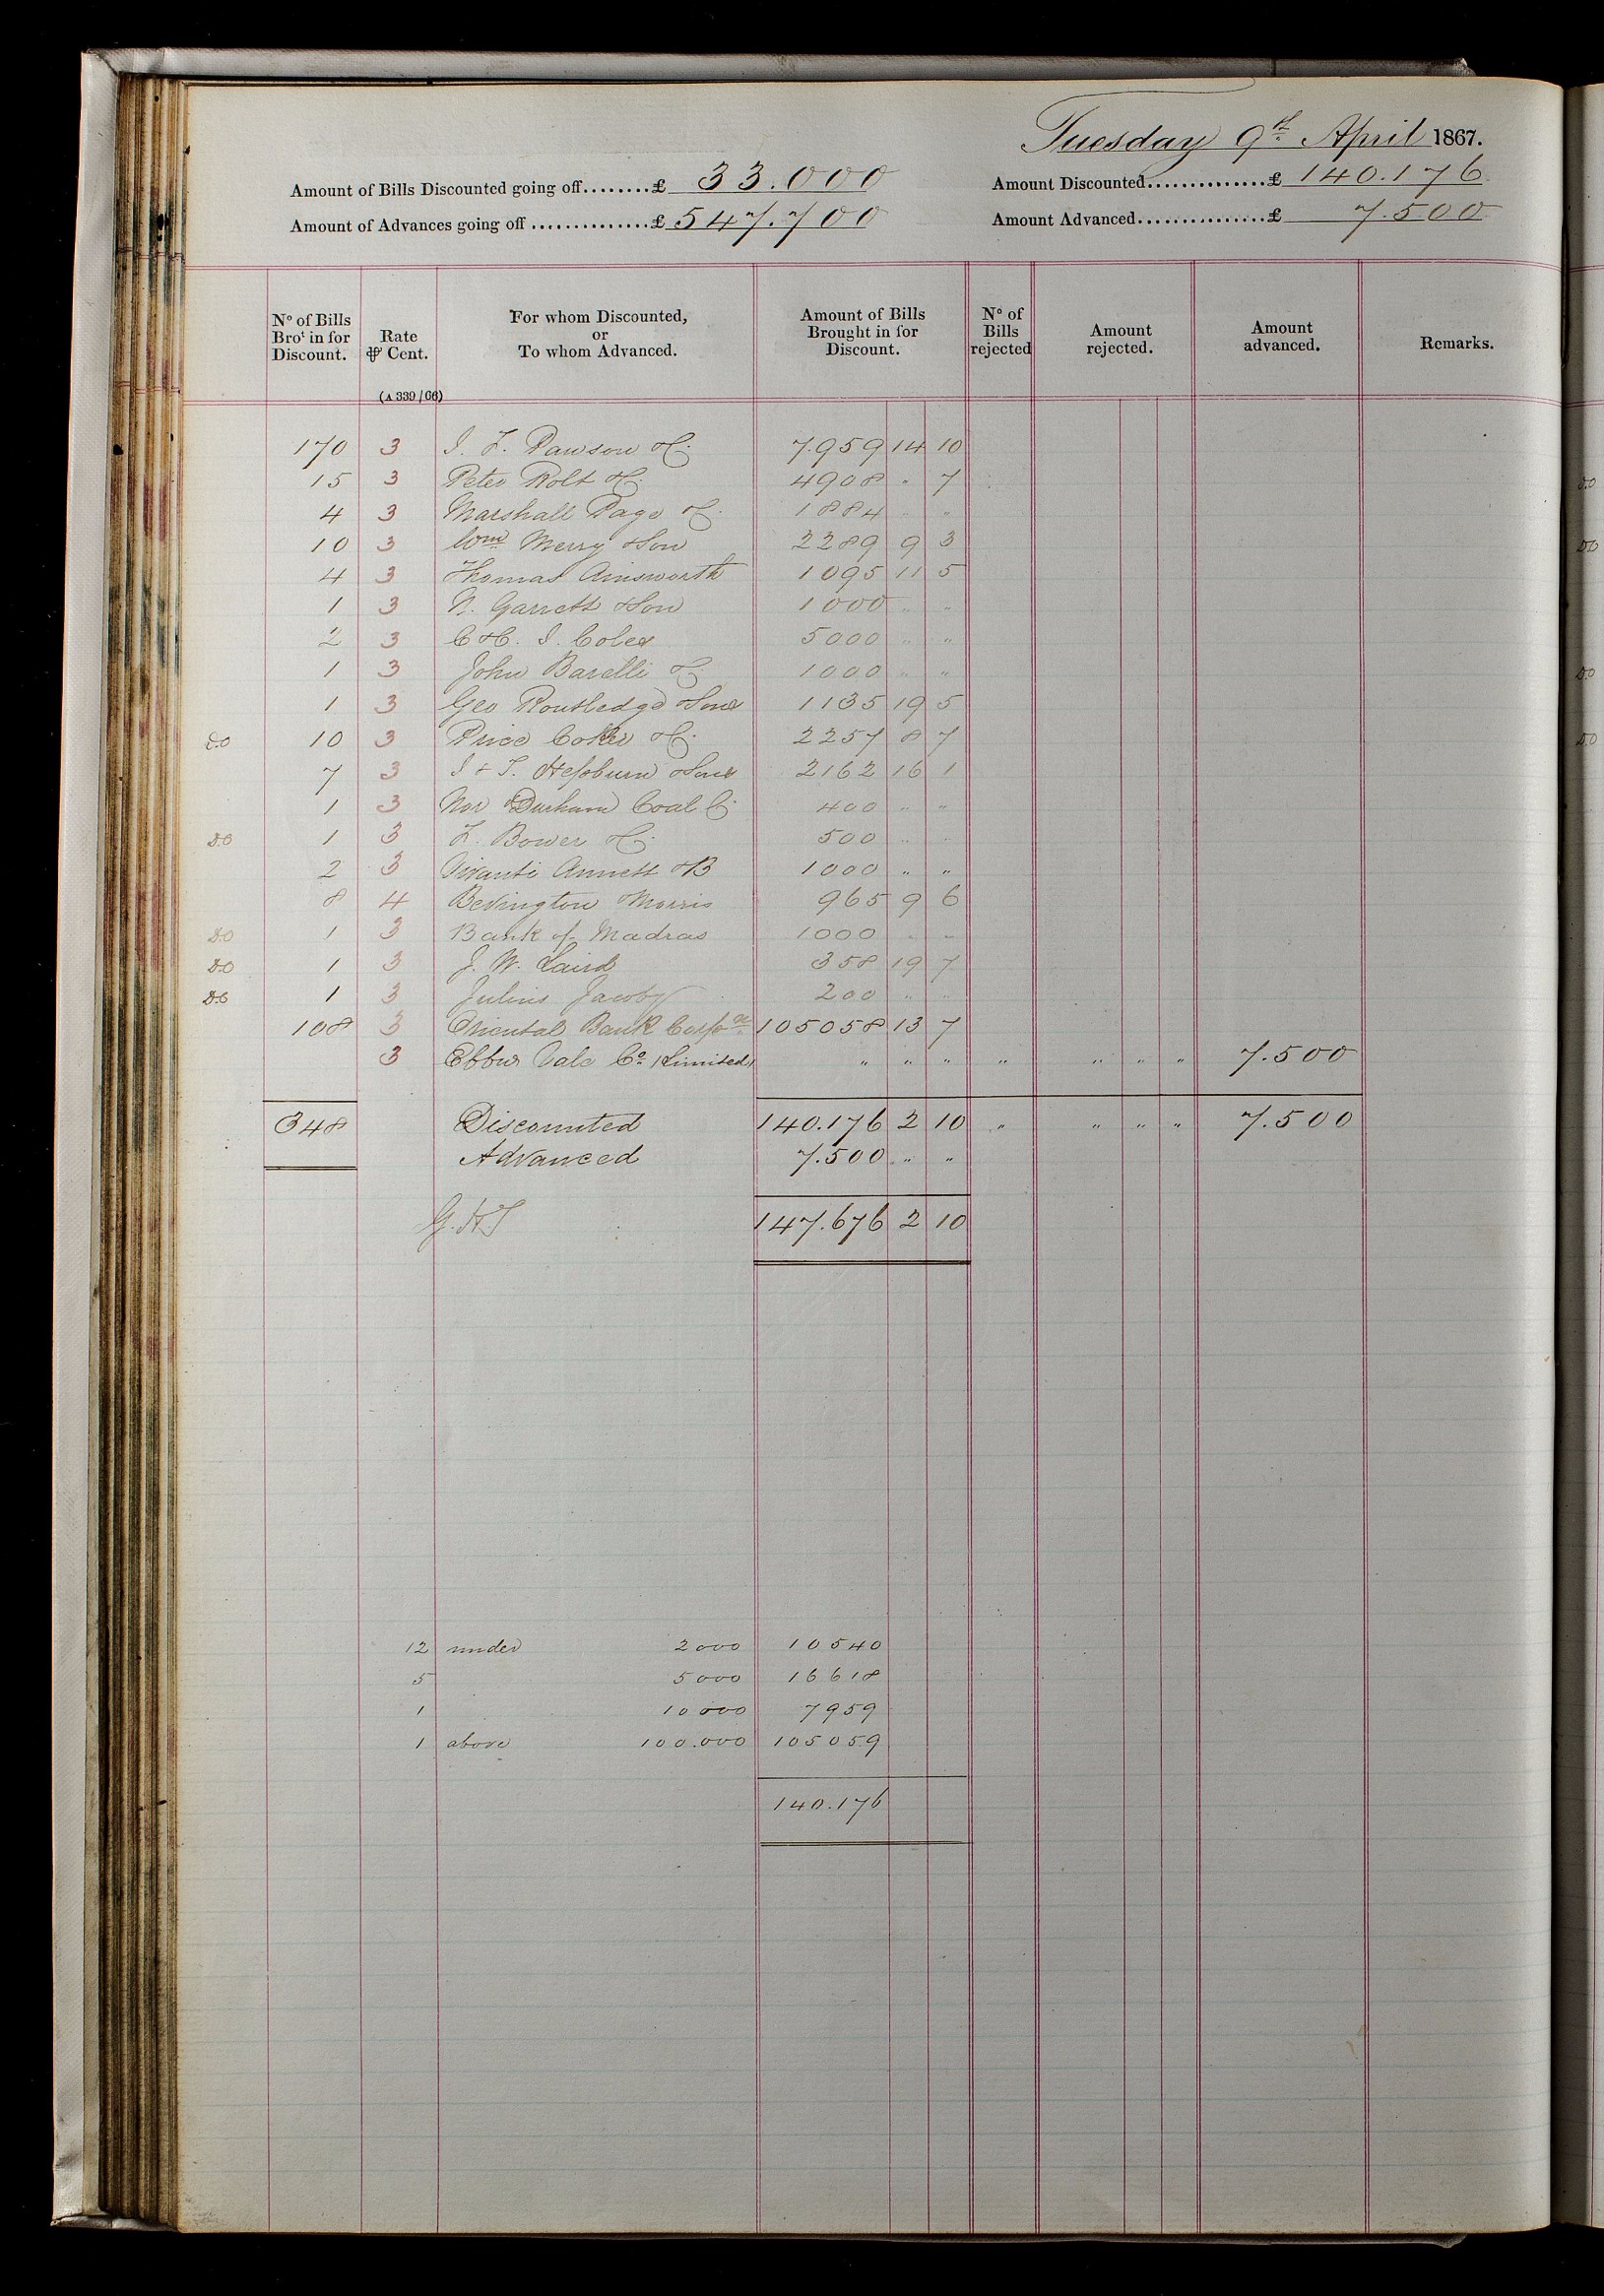 Tuesday 9th April 1867.
Amount of Bills Discounted going off........£ 33.000 Amount Discounted...............£ 140.176
Amount of Advances going off ...............£ 547.700 Amount Advanced................£ 7.500
No of Bills Brot in for Discount. Rate ⅌ Cent. For whom Discounted, or To whom Advanced. Amount of Bills Brought in for Discount. No of Bills rejected Amount rejected. Amount advanced. Remarks.
(A 339/66)
170 3 I. F. Pawson & Co. 7.959 14 10
15 3 Peter Rolt & Co. 4908 " 7
4 3 Marshall Page & Co. 1884 " "
10 3 Wm Merry & Son 2289 9 3
4 3 Thomas Ainsworth 1095 11 5
1 3 N. Garrett & Son 1000 " "
2 3 C & C. I. Coles 5000 " "
1 3 John Barelli & Co 1000 " "
1 3 Geo Routledge & Sons 1135 19 5
D.O 10 3 Price Coker & Co. 2257 8 7
7 3 I & T. Hepburn & Sons 2162 16 1
1 3 Nor Durham Coal Co 400 " "
D.O 1 3 F. Bower & Co. 500 " "
2 3 Vivanti Annett & B 1000 " "
8 4 Bevington & Morris 965 9 6
D.O 1 3 Bank of Madras 1000 " "
D.O 1 3 J. W. Laird 358 19 7
D.O 1 3 Julius Jacoby 200 " "
108 3 Oriental Bank Corpon 105058 13 7
3 Ebbw Vale Co (Limited) " " " " " " " 7.500
348 Discounted 140.176 2 10 " " " " 7.500
Advanced 7.500 " "
G.H.T 147.676 2 10
12 under 2000 10540
5 5000 16618
1 10000 7959
1 above 100.000 105059
140.176